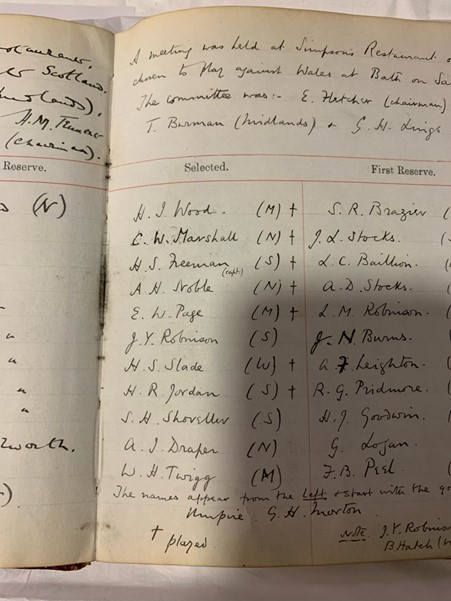 Scotland.
A meeting was held at Simpson's Restaurant
chosen to play against Wales at Bath on
The committee was:- E. Fletcher (chairman)
T. Burman (Midlands) + G. H.
(chairman).
Reserve.
Selected.
First Reserve.
(N)
H. I. Wood. (M) †
S. R. Brazier
C. W. Marshall (N) †
J. L. Stocks.
H. S. Freeman (capt.) (S) †
L. C. Baillion.
A. H. Noble (N) †
A. D. Stocks.
E. W. Page (M) †
L. M. Robinson.
J. Y. Robinson (S)
J. N. Burns.
H. S. Slade (W) †
Leighton.
H. R. Jordan (S) †
R. G. Pridmore.
S. H. Shoveller (S)
H. J. Goodwin.
A. J. Draper (N)
G. Logan.
W. H. Twigg (M)
F. B. Peel.
The names appear from the Left + start with the
Umpire. G. H. Morton
† played
NOTE J. Y.
B Hatch